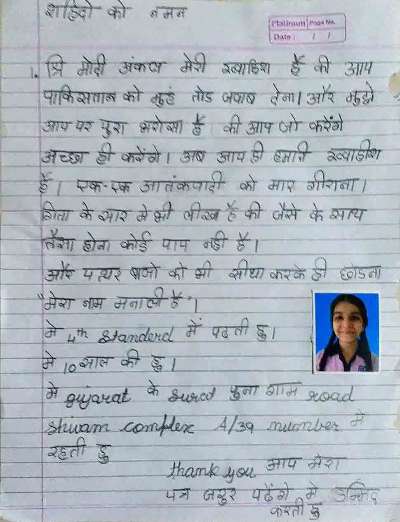 शहिदो को नमन
Platinum Page No.
Date : / /
1. श्रि मोदी अंकल मेरी ख्वाहिश है की आप
पाकिस्तान को मुह तोड जवाब देना। और मुझे
आप पर पुरा भरोसा है की आप जो करेंगे
अच्छा ही करेंगे। अब आप ही हमारी ख्वाहीश
है। एक-एक आतंकवादी को मार गीराना।
गिता के सार मे भी लीखा है की जैसे के साथ
तैसा होना कोई पाप नही है।
और पत्थर बाजो को भी सीधा करके ही छोडना
मेरा नाम मनाली है।
मे 4th standerd में पढती हु।
मे 10 साल की हु।
मे gujarat के surat पुना गाम road
shivam complex A/39 number मे
रहती हु
thank you आप मेरा
पत्र जरुर पढेंगे मे उम्मिद
करती हु